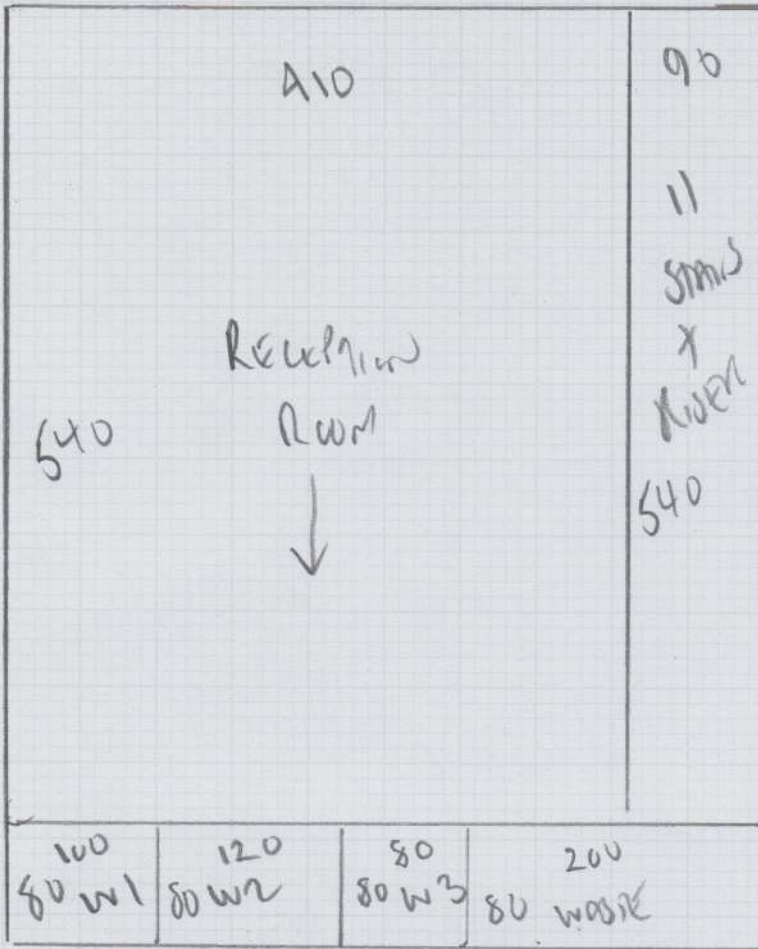 410
90
11
STAIRS
X
RIVER
RECEPTION
ROOM
540
540
100
80 W1
120
80 W2
80
80 W3
200
80 WASTE